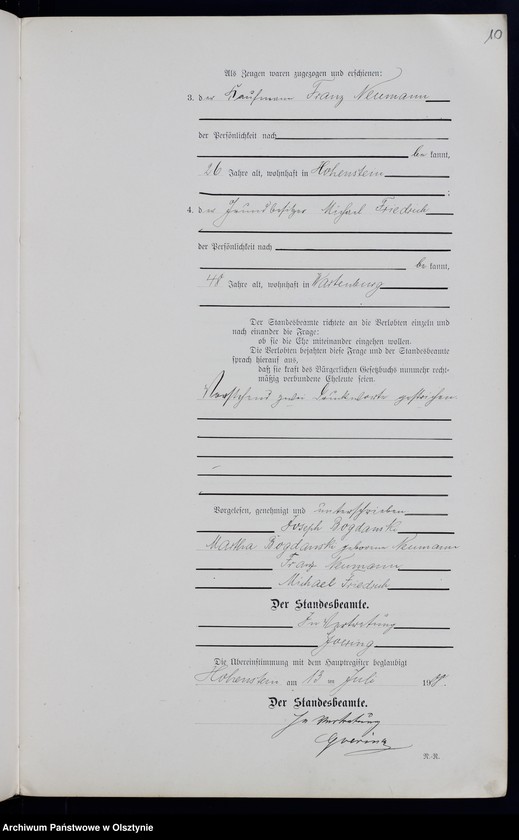 10
Als Zeugen waren zugezogen und erschienen:
3. der Kaufmann Franz Neumann
der Persönlichkeit nach
be kannt,
26 Jahre alt, wohnhaft in Hohenstein
;
4. der Grundbesitzer Michael Friedrich
der Persönlichkeit nach
be kannt,
48 Jahre alt, wohnhaft in Wartenburg
Der Standesbeamte richtete an die Verlobten einzeln und
nach einander die Frage:
ob sie die Ehe miteinander eingehen wollen.
Die Verlobten bejahten diese Frage und der Standesbeamte
sprach hierauf aus,
daß sie kraft des Bürgerlichen Gesetzbuchs nunmehr recht-
mäßig verbundene Eheleute seien.
Vorstehend zwei Druckworte gestrichen.
Vorgelesen, genehmigt und unterschrieben
Joseph Bogdanski
Martha Bogdanski geborene Neumann
Franz Neumann
Michael Friedrich
Der Standesbeamte.
In Vertretung
Die Übereinstimmung mit dem Hauptregister beglaubigt
Hohenstein am 13 ten Juli 19
Der Standesbeamte.
In Vertretung
N.-R.
Archiwum Państwowe w Olsztynie